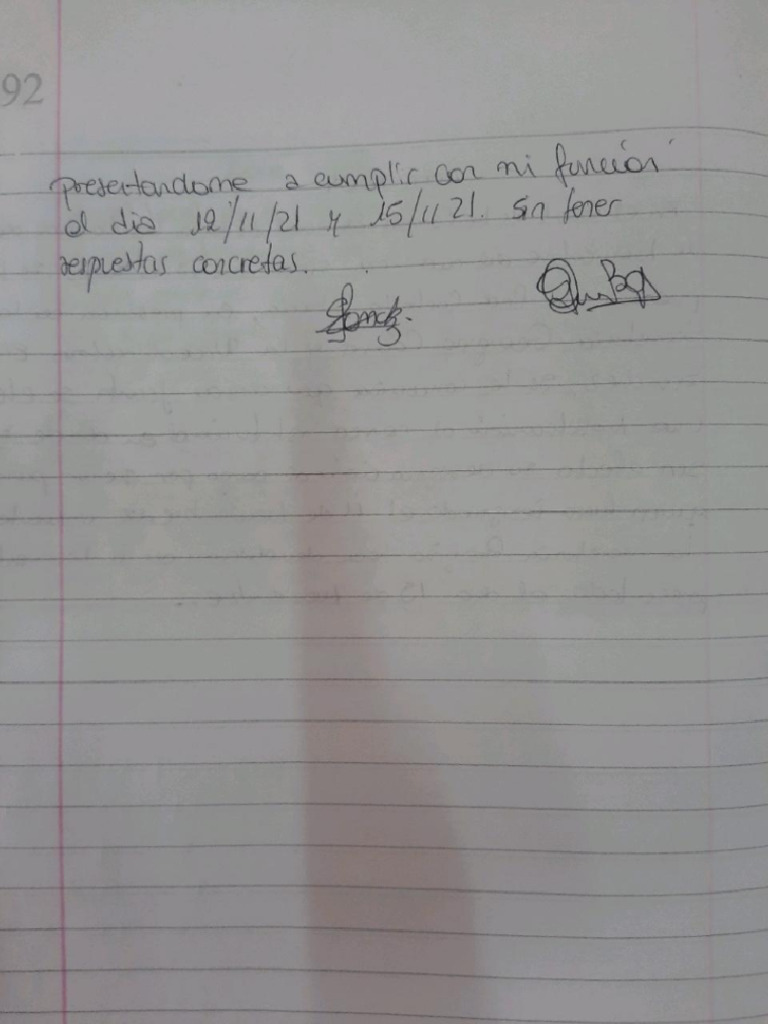 92
presentandome a cumplir con mi función
el dia 12/11/21 y 15/11 21. sin tener
respuestas concretas.